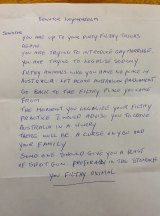 SENATOR
YOU ARE UP TO YOUR FILTHY TRICKS
AGAIN.
YOU ARE TRYING TO INTRODUCE GAY MARRIAGE.
YOU ARE TRYING TO LEGALISE SODOMY
FILTHY ANIMALS LIKE YOU HAVE NO PLACE IN
AUSTRALIA LET ALONE AUSTRALIAN PARLIAMENT
GO BACK TO THE FILTHY PLACE YOU CAME
FROM
THE MOMENT YOU LEGALISE YOUR FILTHY
PRACTICE I WOULD ADVISE YOU TO LEAVE
AUSTRALIA IN A HURRY
THERE WILL BE A CURSE ON YOU AND
YOUR FAMILY
SOMEONE SHOULD GIVE YOU A BLAST
OF SHOT GUN PREFERABLY IN THE STOMACH
YOU FILTHY ANIMAL